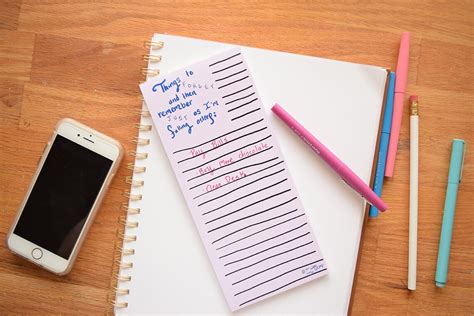 Things to FORGET
and then
remember
JUST as I'm
falling asleep:
Pay Bills
Buy more chocolate
Clean Desk